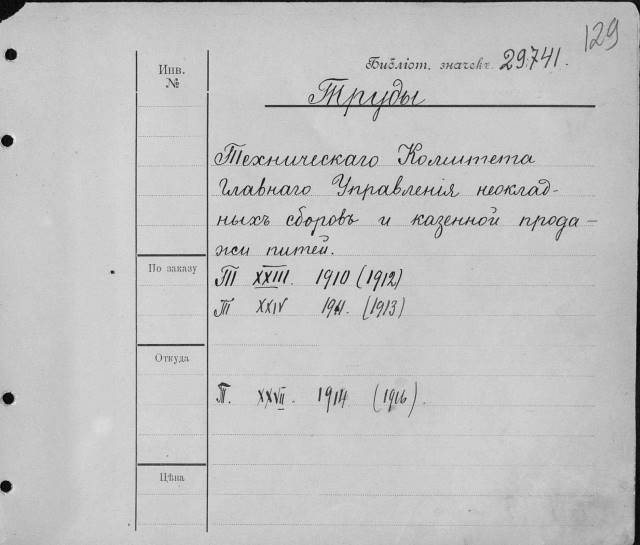 129
Библіот. значекъ 29.741.
Инв.
№
Труды
Техническаго Комитета
Главнаго Управленія неоклад-
ныхъ сборовъ и казенной прода-
жи питей.
По заказу
Т XXIII. 1910 (1912)
Т XXIV 1911. (1913)
Откуда
Т. XXVII. 1914 (1916).
Цѣна